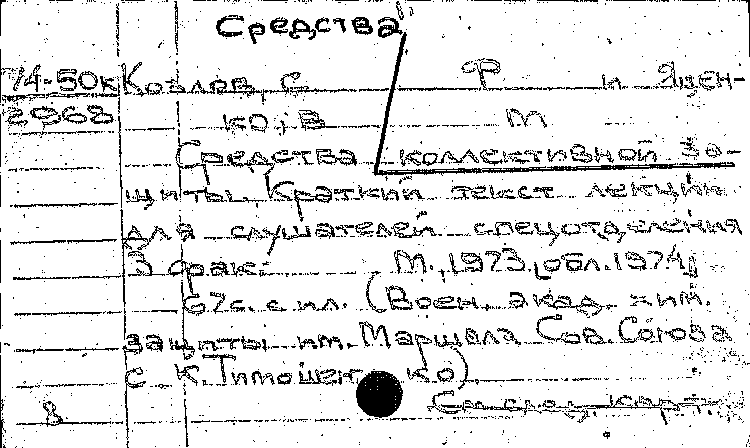 Средства
74-50к Козлов, С Ф и Яцен-
2968 ко, В М
Средства коллективной за-
щиты. Краткий текст лекции
для слушателей спецотделения
3 фак. М., 1973, [обл. 1974].
67 с. с ил. (Воен. акад. хим.
защиты им. Маршала Сов. Союза
С. К. Тимошен ко).
См. след. карт.
8